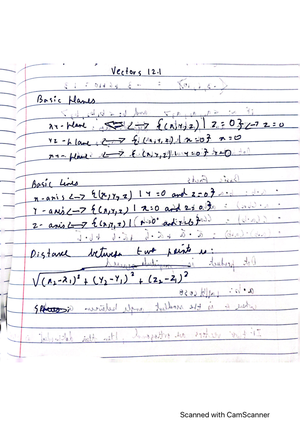 Vectors 12.1
Basic planes
xy-plane ⟺ {(x,y,z) | z = 0} ↔ z = 0
yz-plane ↔ {(x,y,z) | x = 0} x = 0
xz-plane ↔ {(x,y,z) | y = 0} y=0
Basic Lines
x-axis ↔ {(x,y,z) | y = 0 and z=0}
y-axis ↔ {(x,y,z) | x=0 and z=0}
z-axis ↔ {(x,y,z) | x=0 and y=0}
Distance between two points is:
√(x₂-x₁)² + (y₂-y₁)² + (z₂-z₁)²
Scanned with CamScanner